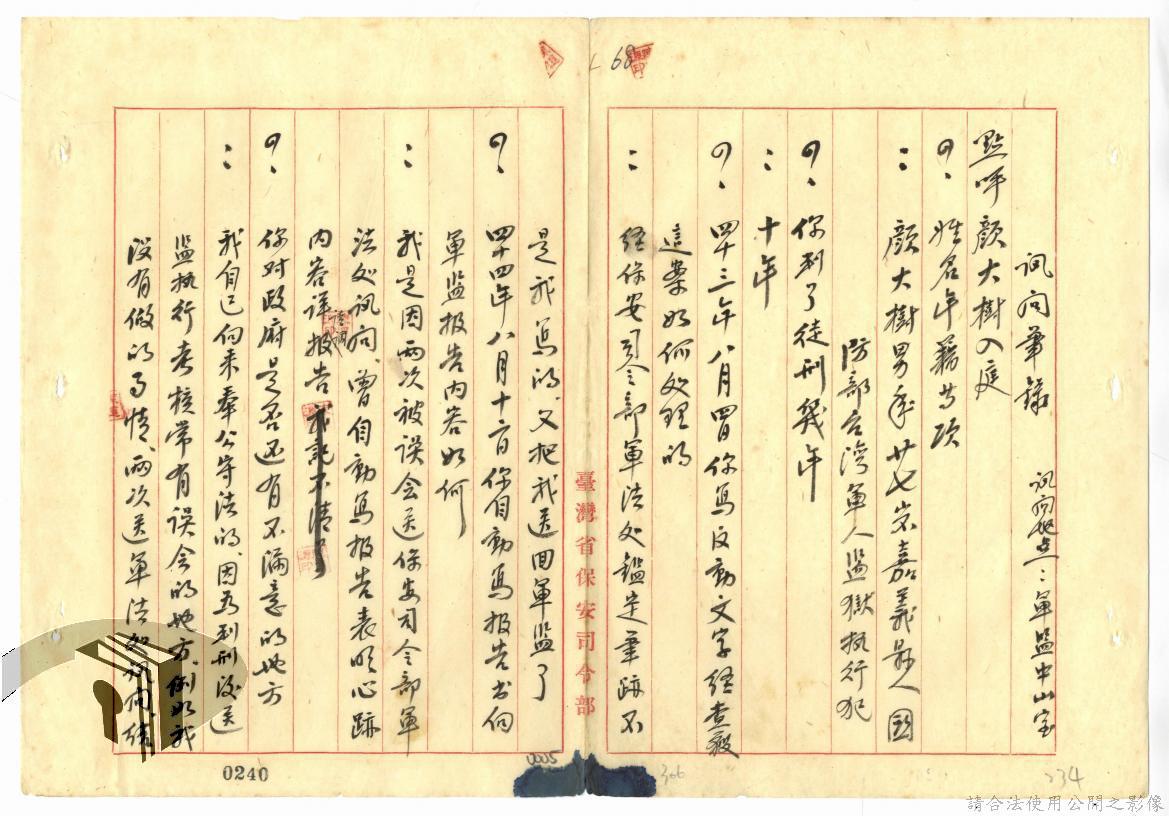 68
訊問筆錄 訊問地点：軍監中山室
點呼顏大樹入庭
問、姓名年籍等項
：顏大樹男年廿七歲嘉義縣人國
防部台灣軍人監獄執行犯
問、你判了徒刑幾年
：十年
問、四十三年八月四日你寫反動文字經查報
這案如何処理的
：經保安司令部軍法処鑑定筆跡不
臺灣省保安司令部
是我寫的、又把我送回軍監了
問、四十四年八月十二日你自動寫報告書向
軍監報告內容如何
：我是因兩次被誤会送保安司令部軍
法処訊問、曾自動寫報告表明心跡
內容詳報告
問、你対政府是否还有不滿意的地方
：我自己向来奉公守法的、因為判刑後送
監执行考核常有误会的地方、例如我
沒有做的事情、兩次送軍法処訊問、結
0240
0005
306
234
請合法使用公開之影像